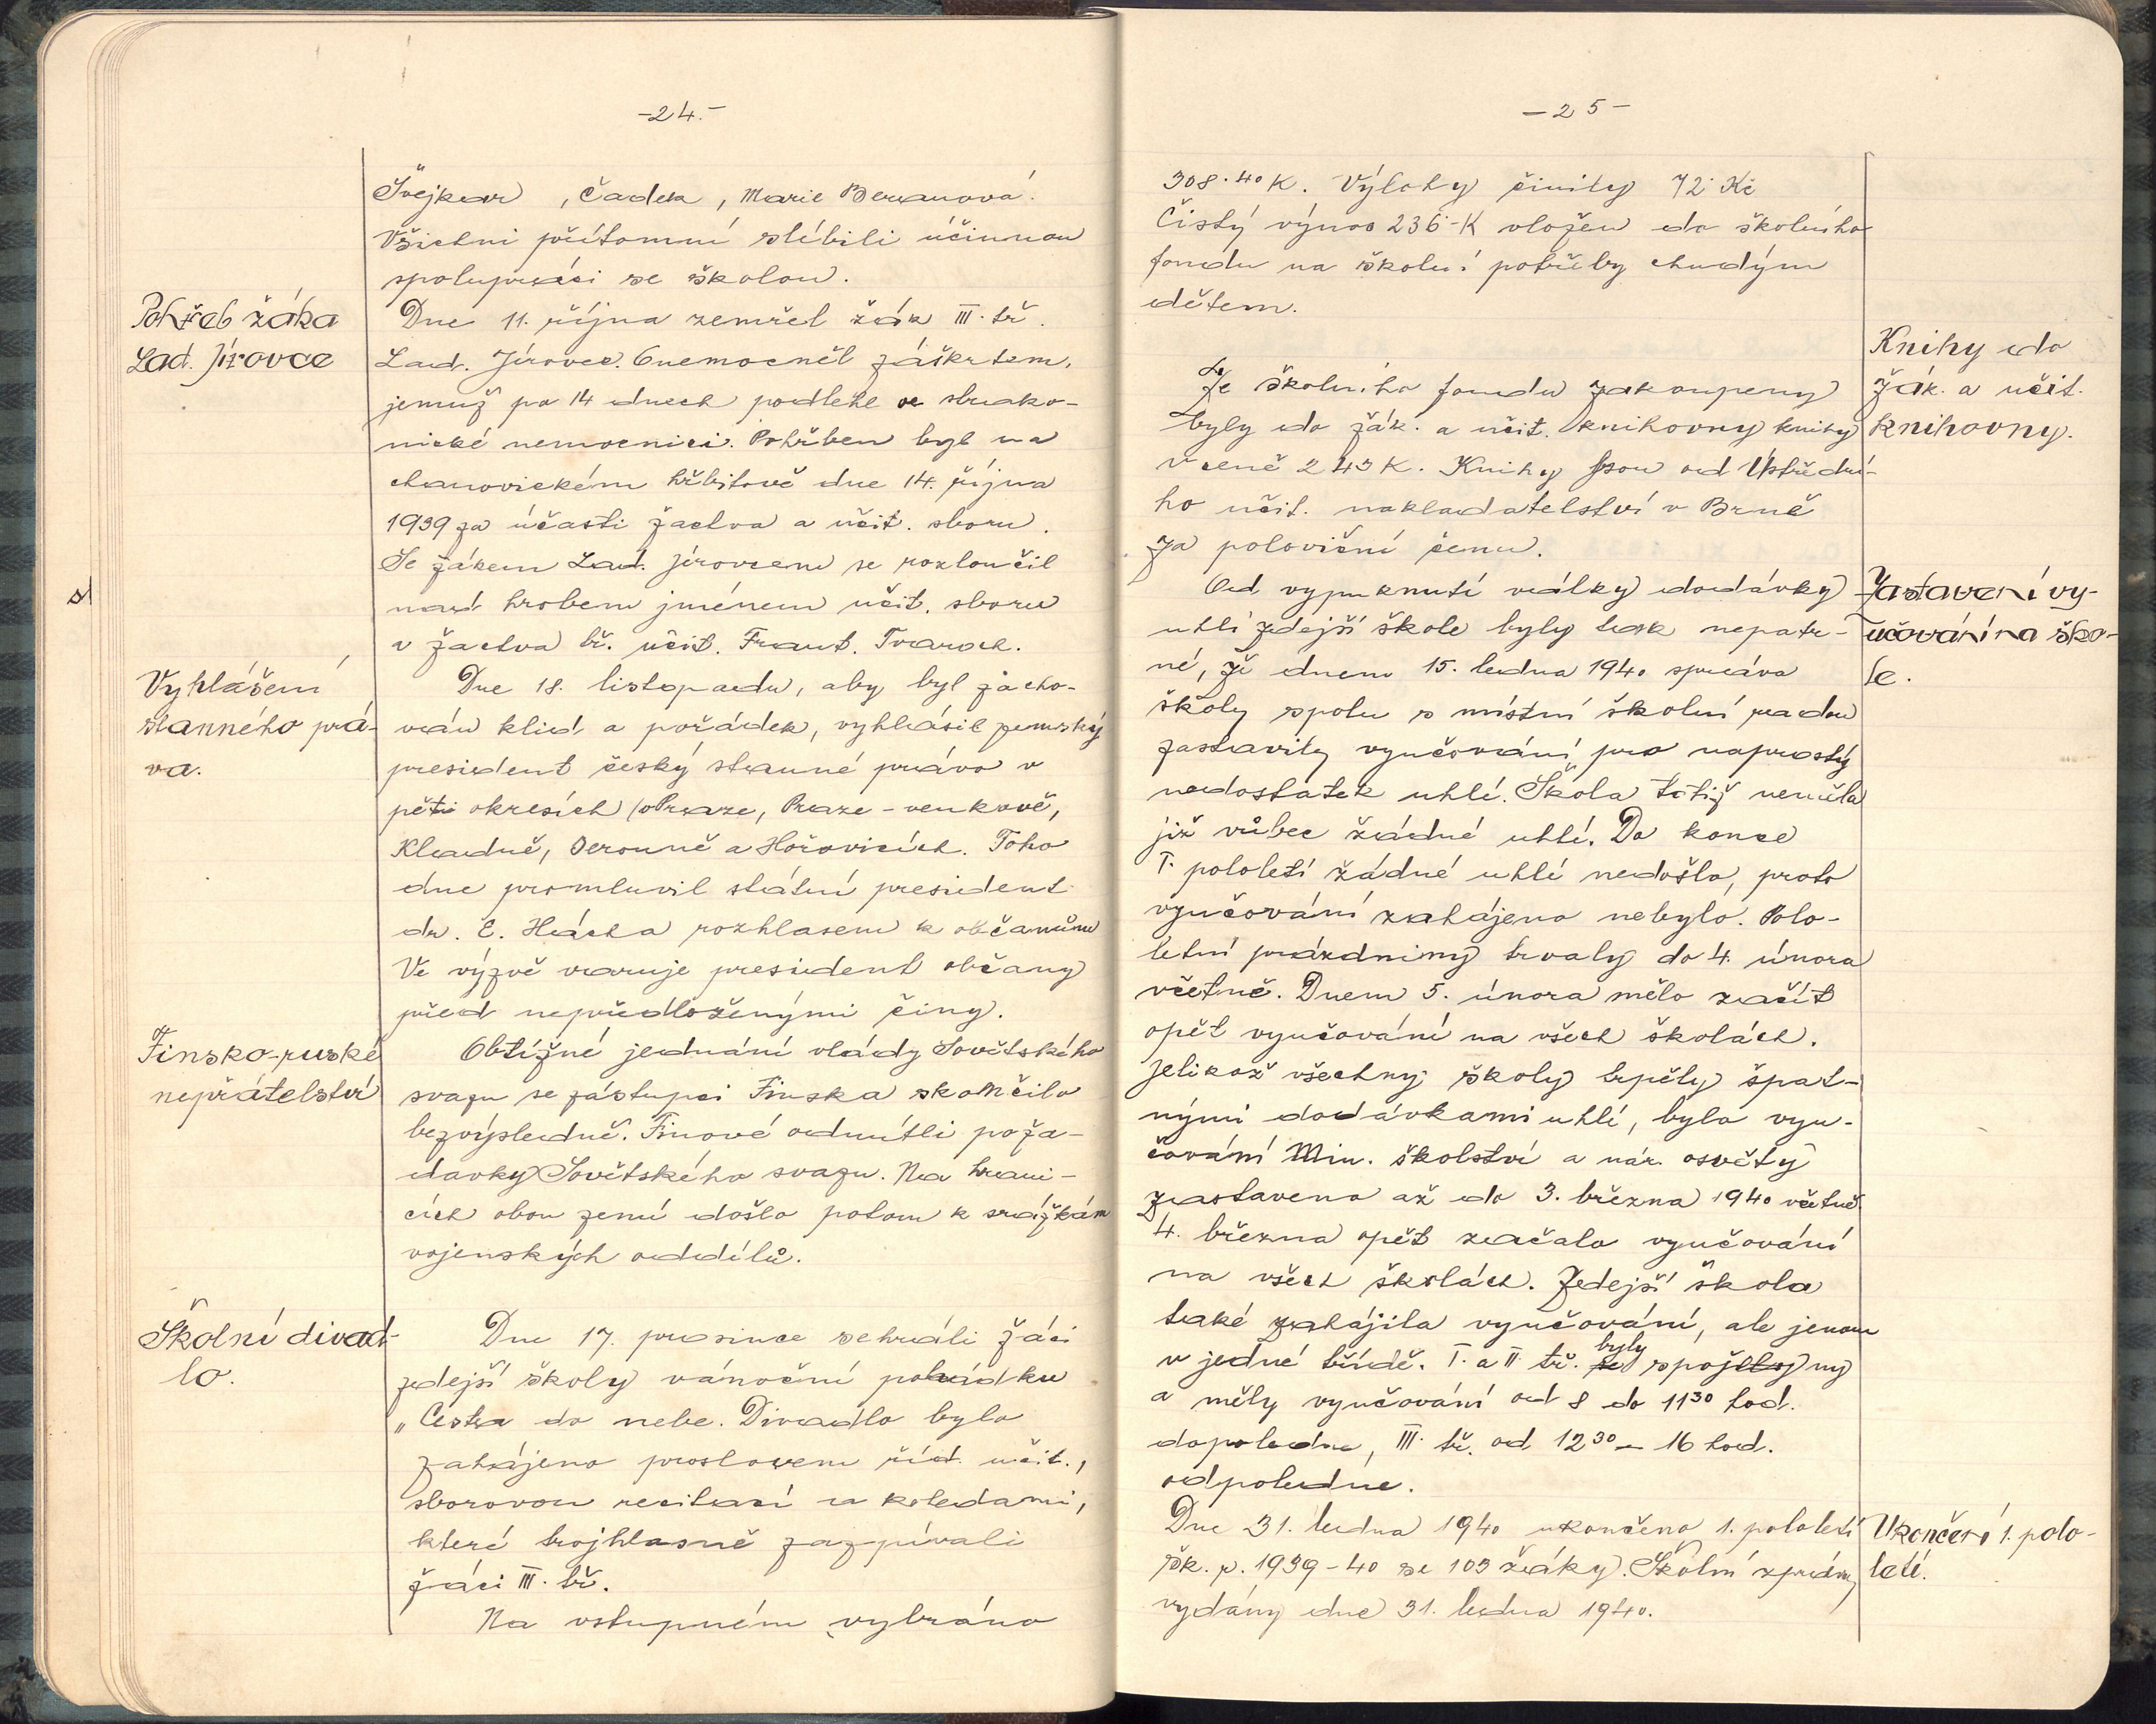 -24.-
Švejkar, Čadek, Marie Beranová.
Všichni přítomní slíbili účinnou
spolupráci se školou.
Pohřeb žáka
Lad. Jírovce
Dne 11. října zemřel žák III. tř.
Lad. Jírovec. Onemocněl záškrtem,
jemuž po 14 dnech podlehl ve strako-
nické nemocnici. Pohřben byl na
chanovickém hřbitově dne 14. října
1939 za účasti žactva a učit. sboru.
Se žákem Lad. Jírovcem se rozloučil
nad hrobem jménem učit. sboru
v žactva tř. učit. Frant. Tvaroch.
Vyhlášení
stanného prá-
va.
Dne 18. listopadu, aby byl zacho-
ván klid a pořádek, vyhlásil zemský
president český stanné právo v
pěti okresích (v Praze, Praze-venkově,
Kladně, Berouně a Hořovicích. Toho
dne promluvil státní president
dr. E. Hácha rozhlasem k občanům
Ve výzvě varuje president občany
před nepředloženými činy.
Finsko-ruské
nepřátelství
Obtížné jednání vlády Sovětského
svazu se zástupci Finska skončilo
bezvýsledně. Finové odmítli poža-
davky Sovětského svazu. Na hrani-
cích obou zemí došlo potom k srážkám
vojenských oddílů.
Školní divad-
lo.
Dne 17. prosince sehráli žáci
zdejší školy vánoční pohádku
„Cesta do nebe. Divadlo bylo
zahájeno proslovem říd. učit.,
sborovou recitací a koledami,
které trojhlasně zazpívali
žáci III. tř.
Na vstupném vybráno
-25-
308.40 K. Výlohy činily 72 Kč
Čistý výnos 236.-K vložen do školního
fondu na školní potřeby chudým
dětem.
Knihy do
žák. a učit.
knihovny.
Ze školního fondu zakoupeny
byly do žák. a učit. knihovny knihy
v ceně 243 K. Knihy jsou od Ústřední-
ho učit. nakladatelství v Brně
za poloviční cenu.
Zastavení vy-
učování na ško-
le.
Od vypuknutí války dodávky
uhlí zdejší škole byly tak nepatr-
né, že dnem 15. ledna 1940 správa
školy spolu s místní školní radou
zastavily vyučování pro naprostý
nedostatek uhlí. Škola totiž neměla
již vůbec žádné uhlí. Do konce
I. pololetí žádné uhlí nedošlo, proto
vyučování zahájeno nebylo. Polo-
letní prázdniny trvaly do 4. února
včetně. Dnem 5. února mělo začít
opět vyučování na všech školách.
Jelikož všechny školy trpěly špat-
nými dodávkami uhlí, bylo vyu-
čování Min. školství a nár. osvěty
zastaveno až do 3. března 1940 včetně.
4. března opět začalo vyučování
na všech školách. Zdejší škola
také zahájila vyučování, ale jenom
v jedné třídě. I. a II. tř. byly spojeny
a měly vyučování od 8 do 11³⁰ hod.
dopoledne, III. tř. od 12³⁰ - 16 hod.
odpoledne.
Ukončení 1. polo-
letí.
Dne 31. ledna 1940 ukončeno 1. pololetí
šk. r. 1939-40 se 103 žáky. Školní zprávy
vydány dne 31. ledna 1940.